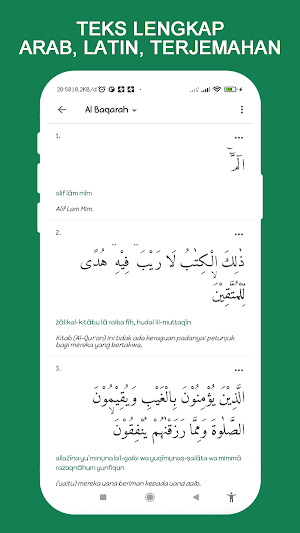 TEKS LENGKAP
ARAB, LATIN, TERJEMAHAN
20:58 | 0.2KB/d
Al Baqarah
1.
الۤمّۤ
alif lām mīm.
Alif Lam Mim.
2.
ذٰلِكَ الْكِتٰبُ لَا رَيْبَ ۛ فِيْهِ ۛ هُدًى
لِّلْمُتَّقِيْنَۙ
żālikal-kitābu lā raiba fīh, hudal lil-muttaqīn
Kitab (Al-Qur'an) ini tidak ada keraguan padanya; petunjuk
bagi mereka yang bertakwa,
3.
الَّذِيْنَ يُؤْمِنُوْنَ بِالْغَيْبِ وَيُقِيْمُوْنَ
الصَّلٰوةَ وَمِمَّا رَزَقْنٰهُمْ يُنْفِقُوْنَۙ
allażīna yu`minụna bil-gaibi wa yuqīmụnaṣ-ṣalāta wa mimmā
razaqnāhum yunfiqụn
(yaitu) mereka yang beriman kepada yang gaib,